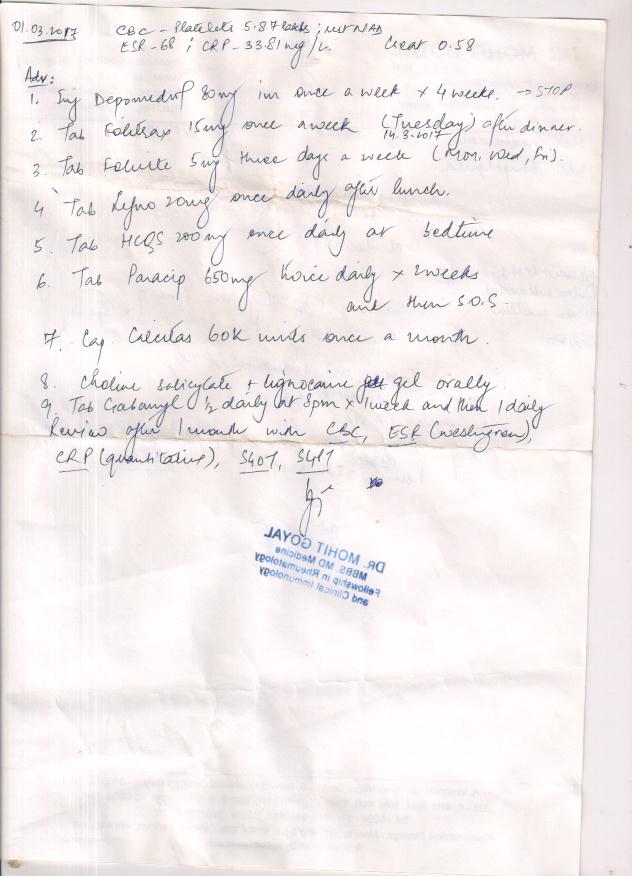 01.03.2017 CBC - Platelets 5.87 lakhs ; rest NAD
ESR - 68 ; CRP - 33.81 mg/L. Creat 0.58
Adv:
1. Inj Depomedrol 80mg im once a week x 4 weeks. → STOP
2. Tab Folitrax 15mg once a week (Tuesday) after dinner.
14.3.2017
3. Tab Folvite 5mg three days a week (Mon, Wed, Fri).
4 Tab Lefno 20mg once daily after lunch.
5. Tab HCQS 200mg once daily at bedtime
6. Tab Paracip 650mg twice daily x 2 weeks
and then S.O.S.
7. Cap. Calcitas 60K units once a month.
8. Choline salicylate + lignocaine gel orally.
9. Tab ½ daily at 8pm x 1 week and then 1 daily
Review after 1 month with CBC, ESR (westergren),
CRP (quantitative), SGOT, SGPT
DR. MOHIT GOYAL
MBBS, MD Medicine
Fellowship in Rheumatology
and Clinical Immunology